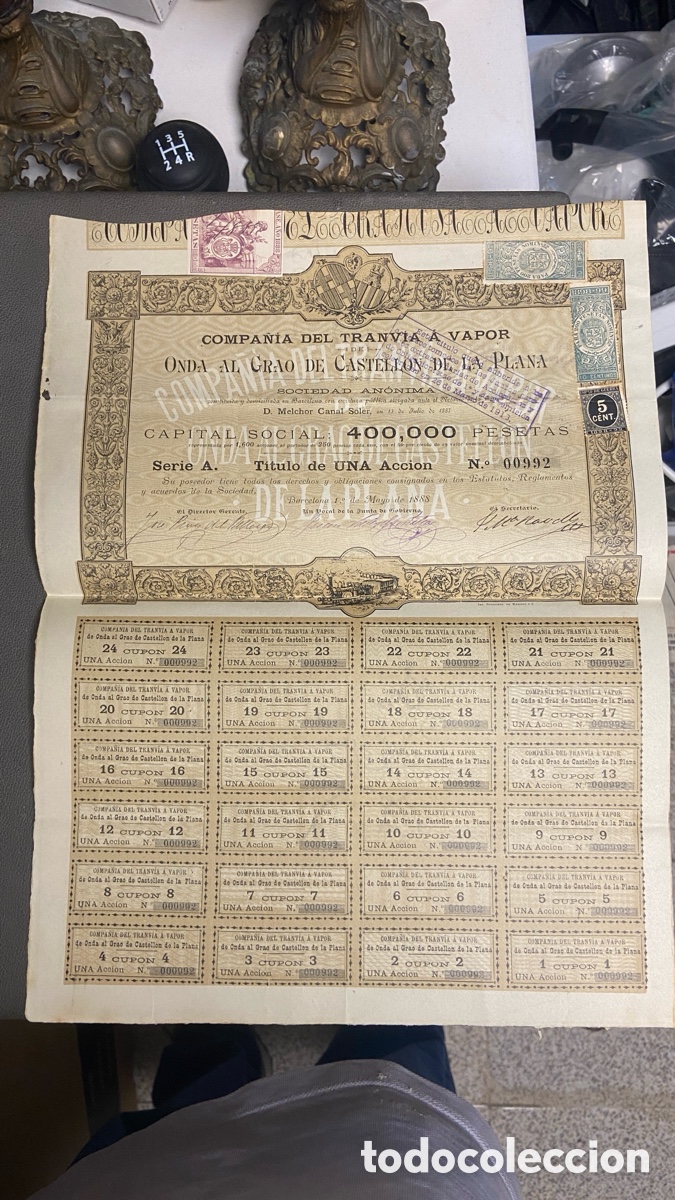 1 3 5
2 4 R
COMPAÑIA DEL TRANVIA Á VAPOR
DE
ONDA AL GRAO DE CASTELLÓN DE LA PLANA
SOCIEDAD ANÓNIMA
D. Melchor Canal Soler, en 13 de Julio de 1887
CAPITAL SOCIAL: 400,000 PESETAS
5
CENT.
Serie A. Título de UNA Accion N.º 00992
Su poseedor tiene todos los derechos y obligaciones consignados en los Estatutos, Reglamentos
y acuerdos de la Sociedad.
Barcelona 1.º de Mayo de 1888
El Director Gerente, Un Vocal de la Junta de Gobierno, El Secretario,
COMPAÑIA DEL TRANVIA Á VAPOR COMPAÑIA DEL TRANVIA Á VAPOR COMPAÑIA DEL TRANVIA Á VAPOR COMPAÑIA DEL TRANVIA Á VAPOR
de Onda al Grao de Castellon de la Plana de Onda al Grao de Castellon de la Plana de Onda al Grao de Castellon de la Plana de Onda al Grao de Castellon de la Plana
24 CUPON 24 23 CUPON 23 22 CUPON 22 21 CUPON 21
UNA Accion N.º 000992 UNA Accion N.º 000992 UNA Accion N.º 000992 UNA Accion N.º 000992
COMPAÑIA DEL TRANVIA Á VAPOR COMPAÑIA DEL TRANVIA Á VAPOR COMPAÑIA DEL TRANVIA Á VAPOR COMPAÑIA DEL TRANVIA Á VAPOR
de Onda al Grao de Castellon de la Plana de Onda al Grao de Castellon de la Plana de Onda al Grao de Castellon de la Plana de Onda al Grao de Castellon de la Plana
20 CUPON 20 19 CUPON 19 18 CUPON 18 17 CUPON 17
UNA Accion N.º 000992 UNA Accion N.º 000992 UNA Accion N.º 000992 UNA Accion N.º 000992
COMPAÑIA DEL TRANVIA Á VAPOR COMPAÑIA DEL TRANVIA Á VAPOR COMPAÑIA DEL TRANVIA Á VAPOR COMPAÑIA DEL TRANVIA Á VAPOR
de Onda al Grao de Castellon de la Plana de Onda al Grao de Castellon de la Plana de Onda al Grao de Castellon de la Plana de Onda al Grao de Castellon de la Plana
16 CUPON 16 15 CUPON 15 14 CUPON 14 13 CUPON 13
UNA Accion N.º 000992 UNA Accion N.º 000992 UNA Accion N.º 000992 UNA Accion N.º 000992
COMPAÑIA DEL TRANVIA Á VAPOR COMPAÑIA DEL TRANVIA Á VAPOR COMPAÑIA DEL TRANVIA Á VAPOR COMPAÑIA DEL TRANVIA Á VAPOR
de Onda al Grao de Castellon de la Plana de Onda al Grao de Castellon de la Plana de Onda al Grao de Castellon de la Plana de Onda al Grao de Castellon de la Plana
12 CUPON 12 11 CUPON 11 10 CUPON 10 9 CUPON 9
UNA Accion N.º 000992 UNA Accion N.º 000992 UNA Accion N.º 000992 UNA Accion N.º 000992
COMPAÑIA DEL TRANVIA Á VAPOR COMPAÑIA DEL TRANVIA Á VAPOR COMPAÑIA DEL TRANVIA Á VAPOR COMPAÑIA DEL TRANVIA Á VAPOR
de Onda al Grao de Castellon de la Plana de Onda al Grao de Castellon de la Plana de Onda al Grao de Castellon de la Plana de Onda al Grao de Castellon de la Plana
8 CUPON 8 7 CUPON 7 6 CUPON 6 5 CUPON 5
UNA Accion N.º 000992 UNA Accion N.º 000992 UNA Accion N.º 000992 UNA Accion N.º 000992
COMPAÑIA DEL TRANVIA Á VAPOR COMPAÑIA DEL TRANVIA Á VAPOR COMPAÑIA DEL TRANVIA Á VAPOR COMPAÑIA DEL TRANVIA Á VAPOR
de Onda al Grao de Castellon de la Plana de Onda al Grao de Castellon de la Plana de Onda al Grao de Castellon de la Plana de Onda al Grao de Castellon de la Plana
4 CUPON 4 3 CUPON 3 2 CUPON 2 1 CUPON 1
UNA Accion N.º 000992 UNA Accion N.º 000992 UNA Accion N.º 000992 UNA Accion N.º 000992
todocoleccion